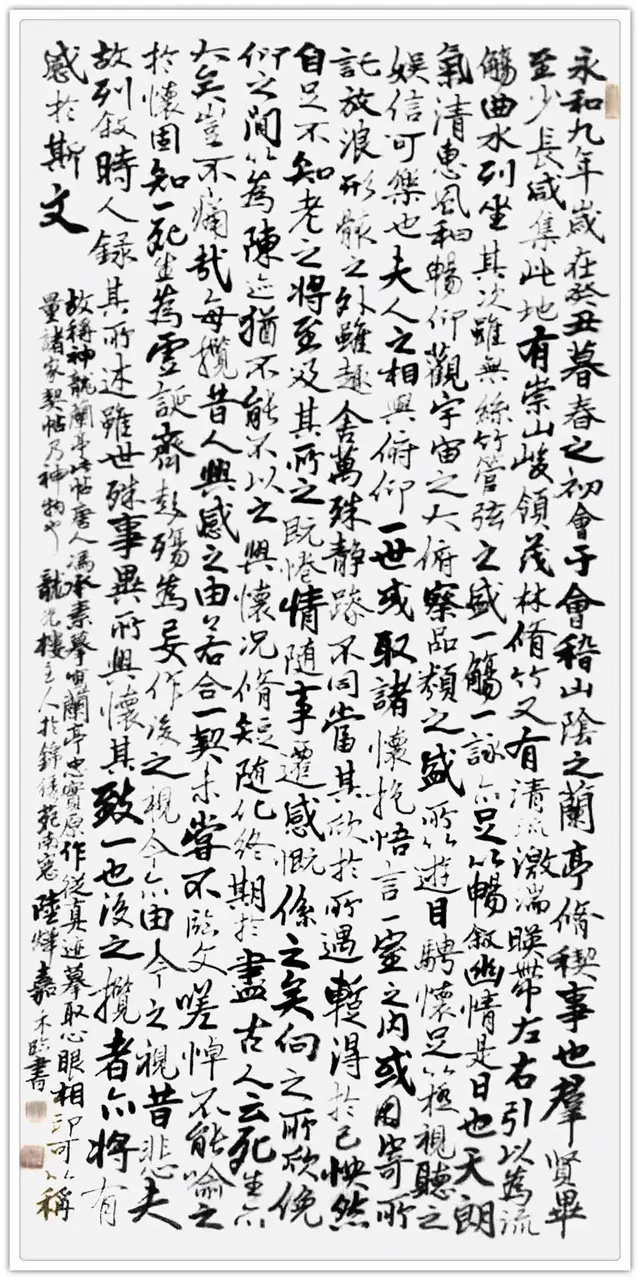 永和九年歲在癸丑暮春之初會于會稽山陰之蘭亭脩稧事也羣賢畢
至少長咸集此地有崇山峻領茂林脩竹又有清流激湍暎帶左右引以為流
觴曲水列坐其次雖無絲竹管弦之盛一觴一詠亦足以暢敘幽情是日也天朗
氣清惠風和暢仰觀宇宙之大俯察品類之盛所以遊目騁懷足以極視聽之
娛信可樂也夫人之相與俯仰一世或取諸懷抱悟言一室之內或因寄所
託放浪形骸之外雖趣舍萬殊靜躁不同當其欣於所遇暫得於己怏然
自足不知老之將至及其所之既惓情隨事遷感慨係之矣向之所欣俛
仰之間以為陳迹猶不能不以之興懷況脩短隨化終期於盡古人云死生亦
大矣豈不痛哉每攬昔人興感之由若合一契未嘗不臨文嗟悼不能喻之
於懷固知一死生為虛誕齊彭殤為妄作後之視今亦由今之視昔悲夫
故列敘時人錄其所述雖世殊事異所興懷其致一也後之攬者亦將有
感於斯文
故稱神龍蘭亭此帖唐人馮承素摹寫蘭亭忠實原作從真迹摹取心眼相印可以稱
量諸家契帖乃神物也 龍光樓主人於錦綉苑南窗 陸煒嘉禾臨書